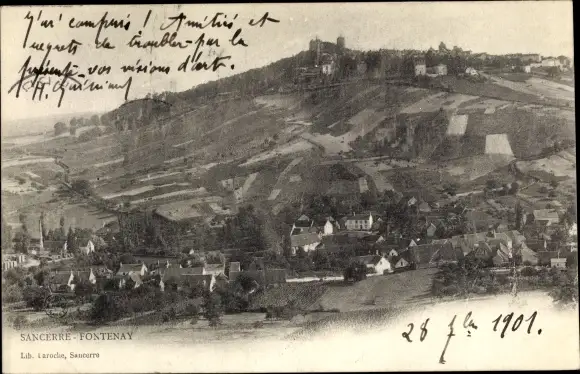 J'ai compris! Amitiés et
regrets de troubler par la
présente vos visions d'art.
SANCERRE - FONTENAY
Lib. Laroche, Sancerre
28 1901.